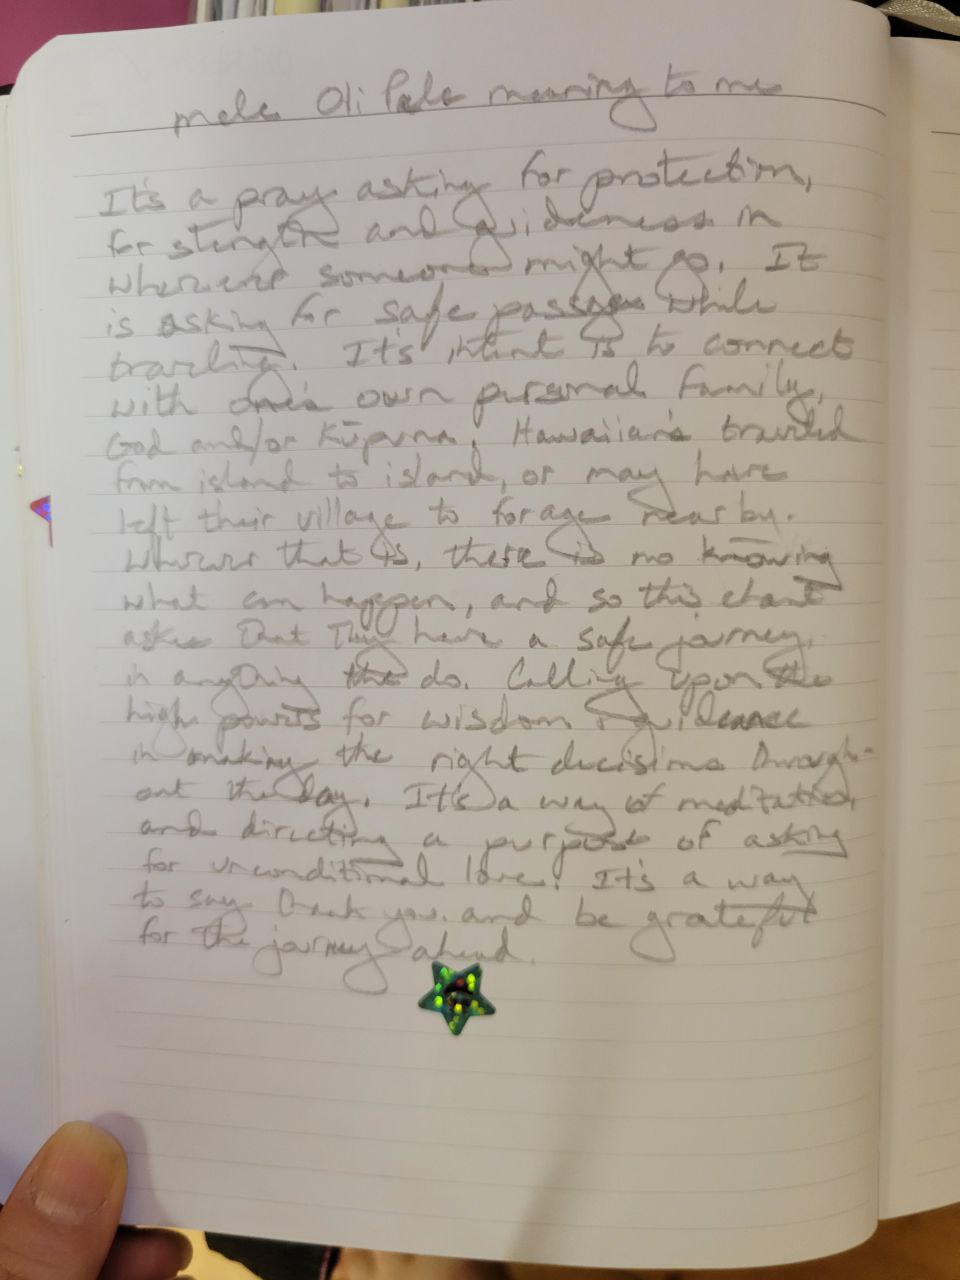 mele Oli Pale meaning to me
It's a pray asking for protection,
for stength and guideness in
wherever someone might go. It
is asking for safe passage while
traveling. It's intent is to connect
with one's own personal family,
God and/or Kūpuna. Hawaiian's traveled
from island to island, or may have
left their village to forage nearby.
Wherever that is, there is no knowing
what can happen, and so this chant
asks that they have a safe journey,
in anything the do. Calling upon the
high powers for wisdom & guideance
in making the right decisions through-
out the day. It's a way of meditation,
and directing a purpose of asking
for unconditional love. It's a way
to say thank you, and be grateful
for the journey ahead.